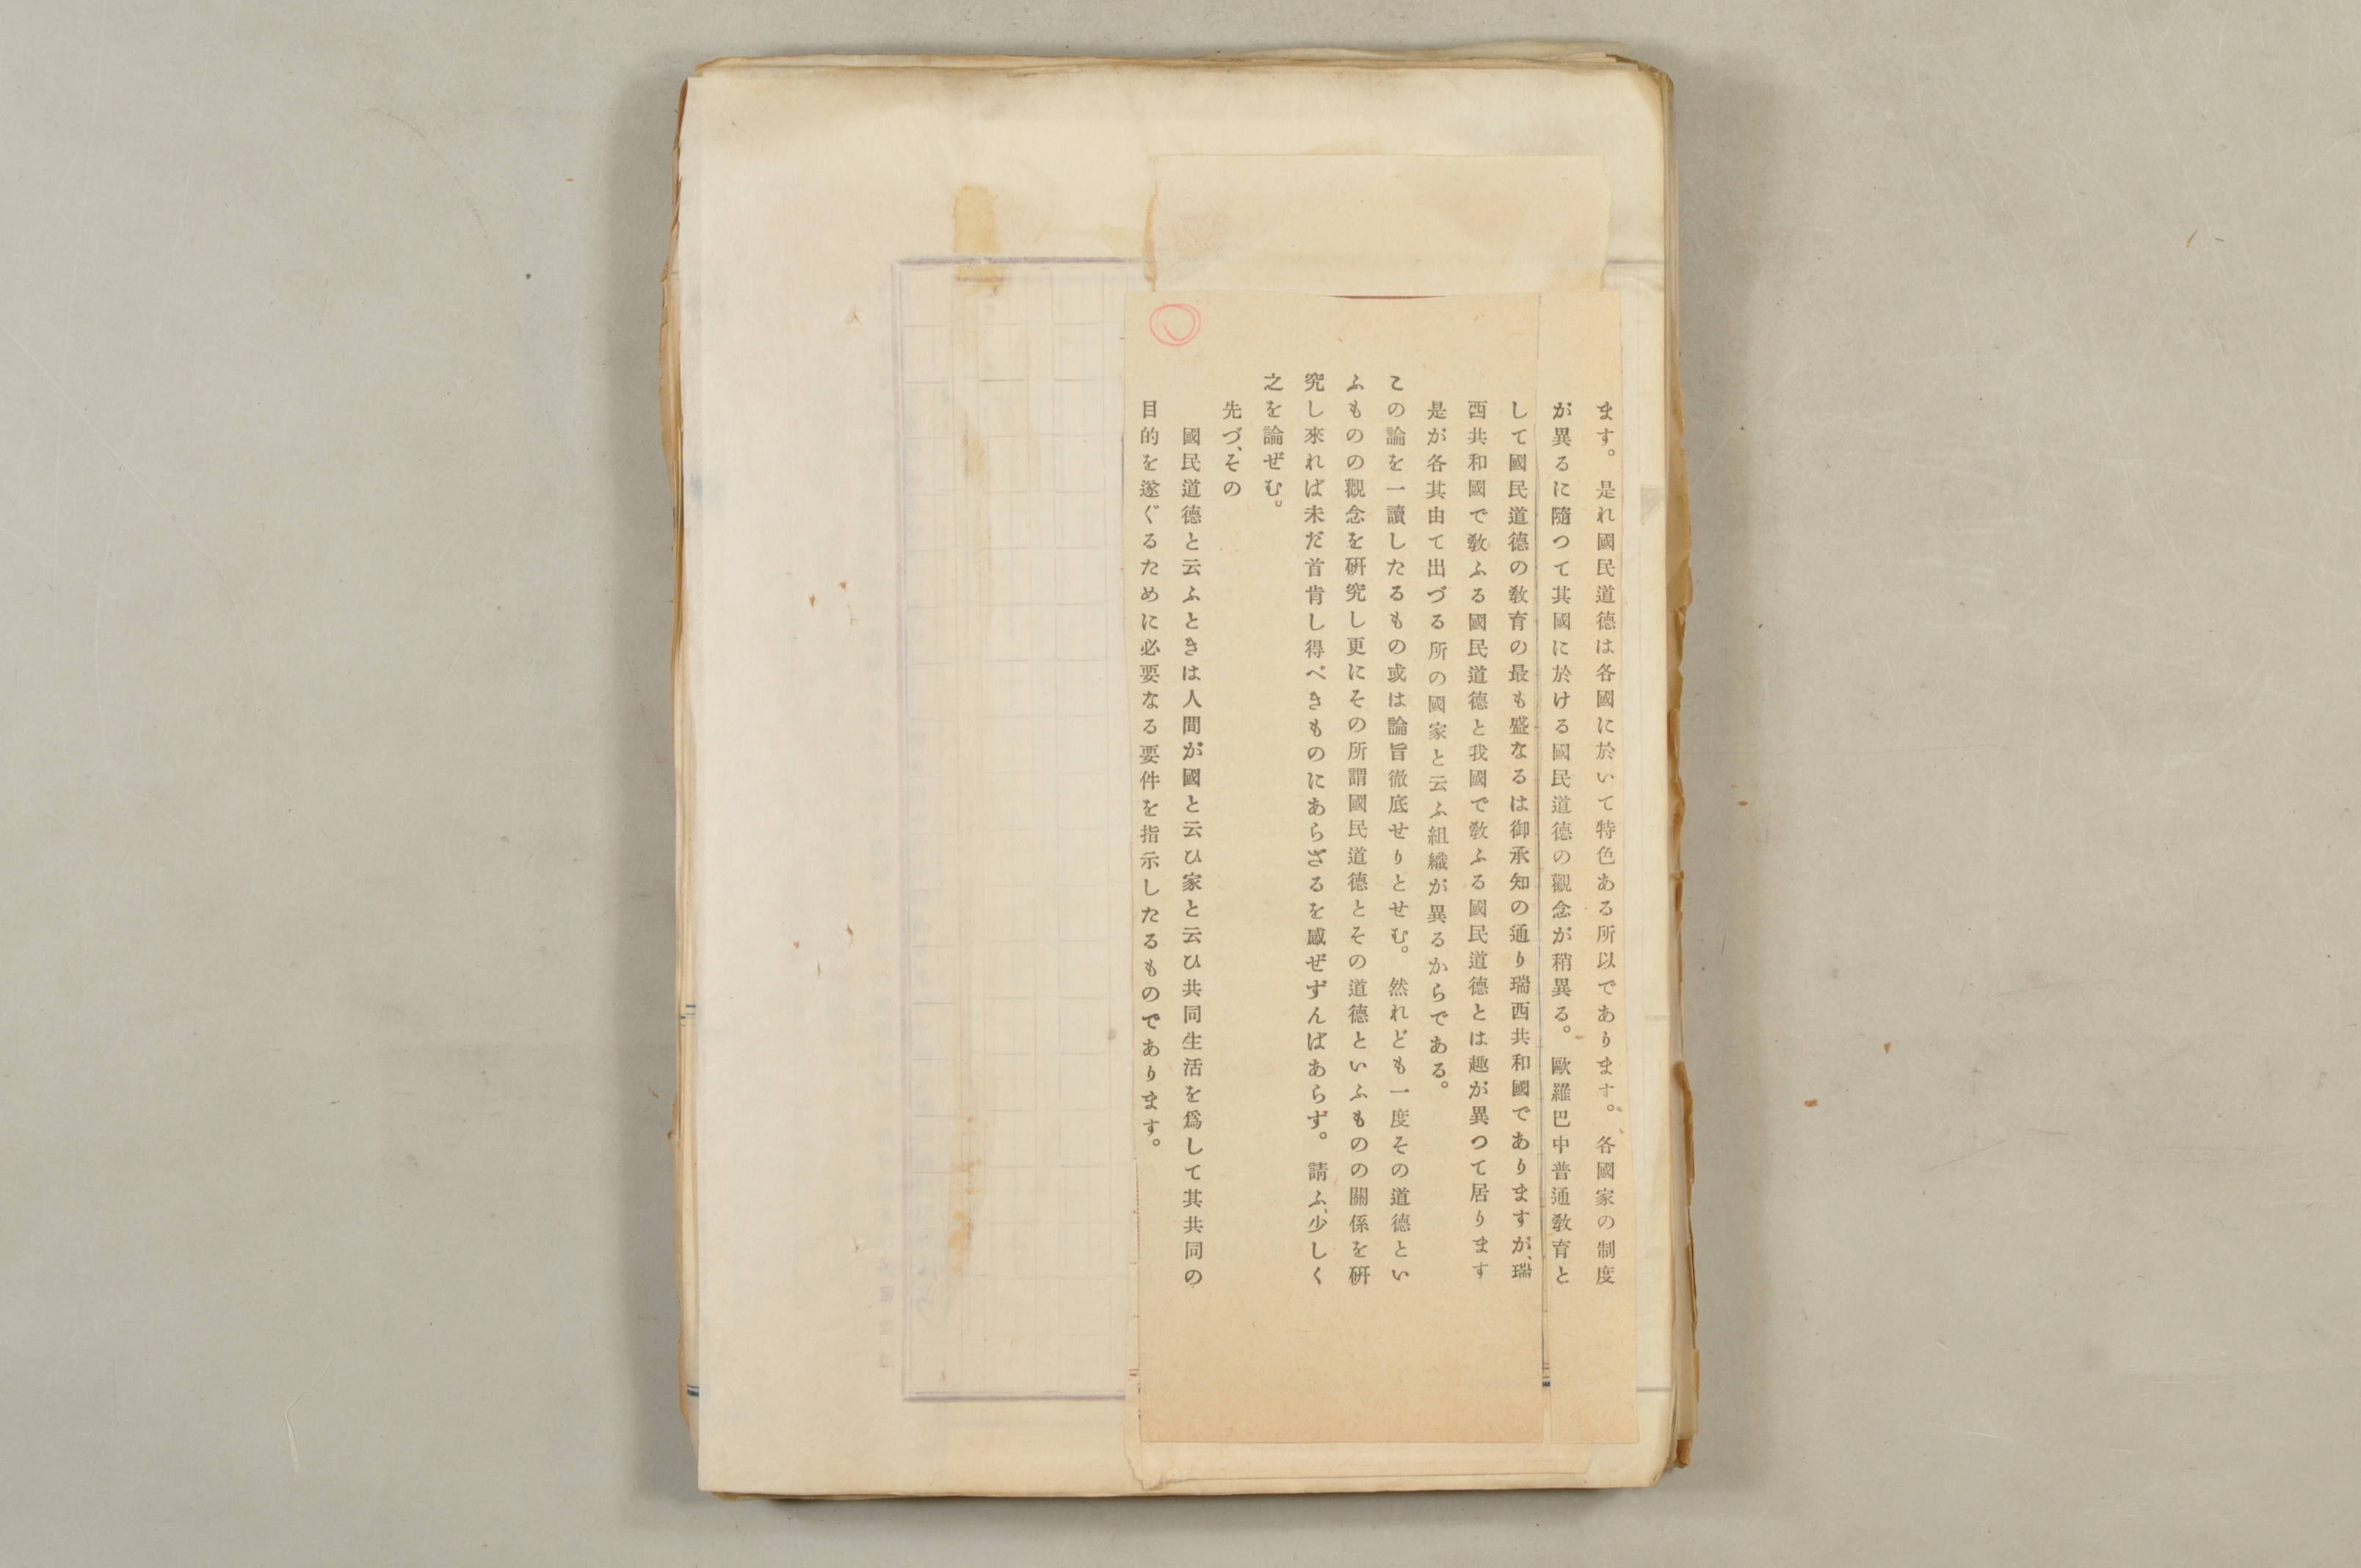 ます。是れ國民道德は各國に於いて特色ある所以であります。各國家の制度
が異るに隨つて其國に於ける國民道德の觀念が稍異る。歐羅巴中普通敎育と
して國民道德の敎育の最も盛なるは御承知の通り瑞西共和國でありますが、瑞
西共和國で敎ふる國民道德と我國で敎ふる國民道德とは趣が異つて居ります
是が各其由て出づる所の國家と云ふ組織が異るからである。
この論を一讀したるもの或は論旨徹底せりとせむ。然れども一度その道德とい
ふものの觀念を硏究し更にその所謂國民道德とその道德といふものの關係を硏
究し來れば未だ首肯し得べきものにあらざるを感ぜずんばあらず。請ふ、少しく
之を論ぜむ。
先づ、その
國民道德と云ふときは人間が國と云ひ家と云ひ共同生活を爲して其共同の
目的を遂ぐるために必要なる要件を指示したるものであります。